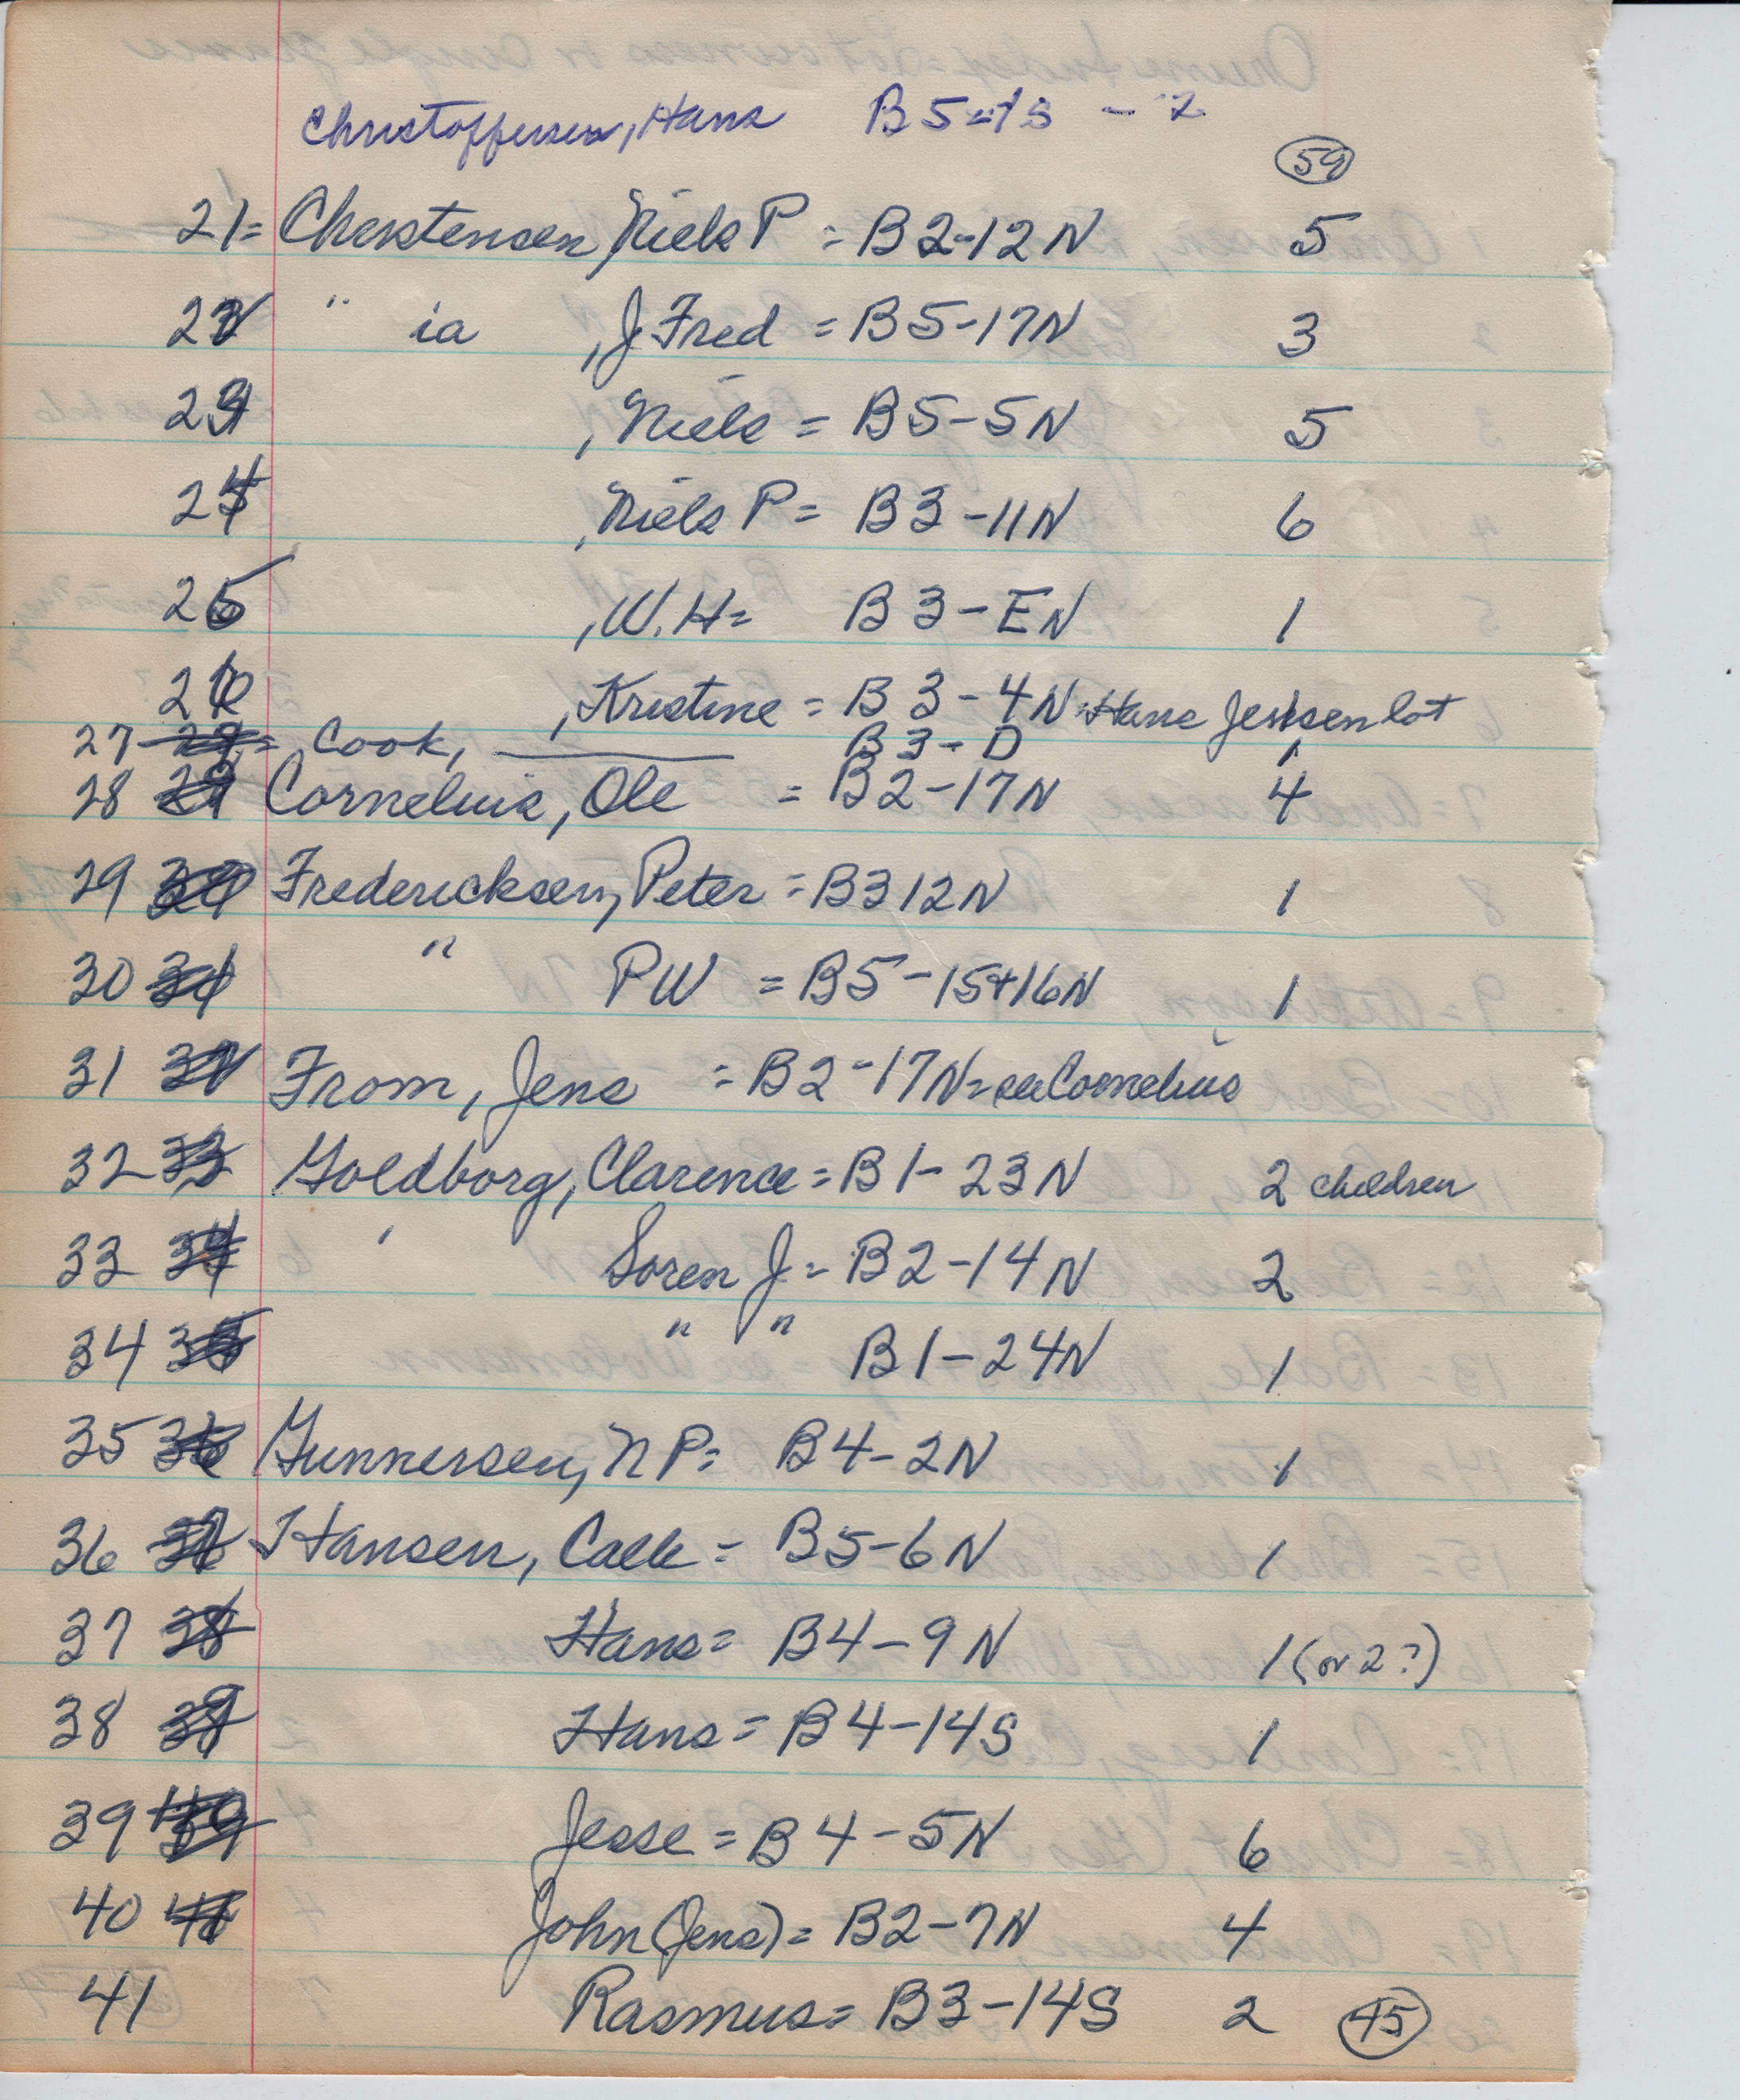 Christoffersen, Hans B5-1S - 2
59
21= Christensen, Niels P = B2-12N 5
22 " ia , J. Fred = B5-17N 3
23 , Niels = B5-5N 5
24 , Niels P = B3-11N 6
25 , W.H= B3-EN 1
26 , Kristine = B3-4N=Hans Jensen lot
27 = Cook, ____ B3-D 1
28 Cornelius, Ole = B2-17N 4
29 Fredericksen, Peter = B312N 1
30 " PW = B5-15+16N 1
31 From, Jens = B2-17N=see Cornelius
32 33 Goldborg, Clarence = B1-23N 2 children
33 34 ' Soren J= B2-14N 2
34 35 " " B1-24N 1
35 36 Gunnersen, NP= B4-2N 1
36 37 Hansen, = B5-6N 1
37 38 Hans= B4-9N 1 (or 2?)
38 39 Hans= B4-14S 1
39 Jesse = B4-5N 6
40 41 John (Jens) = B2-7N 4
41 Rasmus= B3-14S 2 45